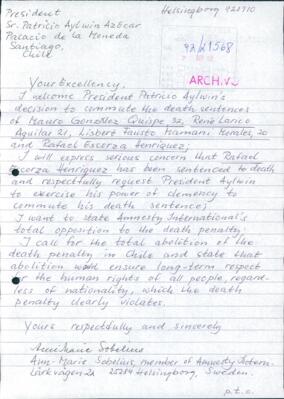 President
Helsingborg 920910
Sr. Patricio Aylwin Azócar
Palacio de la Moneda
Santiago,
Chile
92/21568
ARCHIVO
Your Excellency,
I welcome President Patricio Aylwin's
decision to commute the death sentences
of Mauro González Quispe 32, René Larico
Aguilar 21, Lisbere Fausto Mamani Morales, 20
and Rafael Escorza Henriquez;
I will express serious concern that Rafael
Escorza Henriquez has been sentenced to death
and respectfully request President Aylwin
to exercise his power of clemency to
commute his death sentence;
I want to state Amnesty International's
total opposition to the death penalty.
I call for the total abolition of the
death penalty in Chile and state that
abolition would ensure long-term respect
for the human rights of all people, regard-
less of nationality, which the death
penalty clearly violates.
Yours respectfully and sincerely
Ann-Marie Sobelius
Ann-Marie Sobelius, member of Amnesty Intern.
25284 Helsingborg, Sweden.
p.t.o.